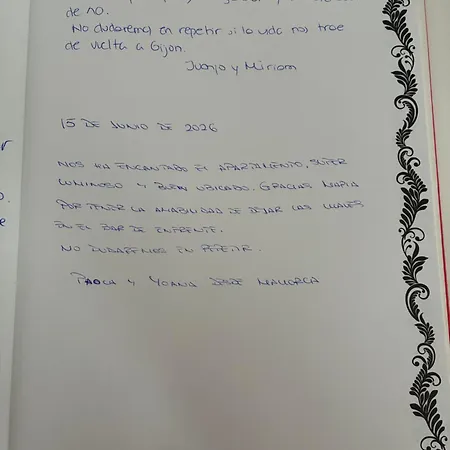 de no.
No dudaremos en repetir si la vida nos trae
de vuelta a Gijon.
Juanjo y Miriam
15 DE JUNIO DE 2026
NOS HA ENCANTADO EL APARTAMENTO, SUPER
LUMINOSO Y BIEN UBICADO. GRACIAS MARIA
POR TENER LA AMABILIDAD DE DEJAR LAS LLAVES
EN EL BAR DE ENFRENTE.
NO DUDAREMOS EN REPETIR.
PAOLA Y YOANA DESDE MALLORCA